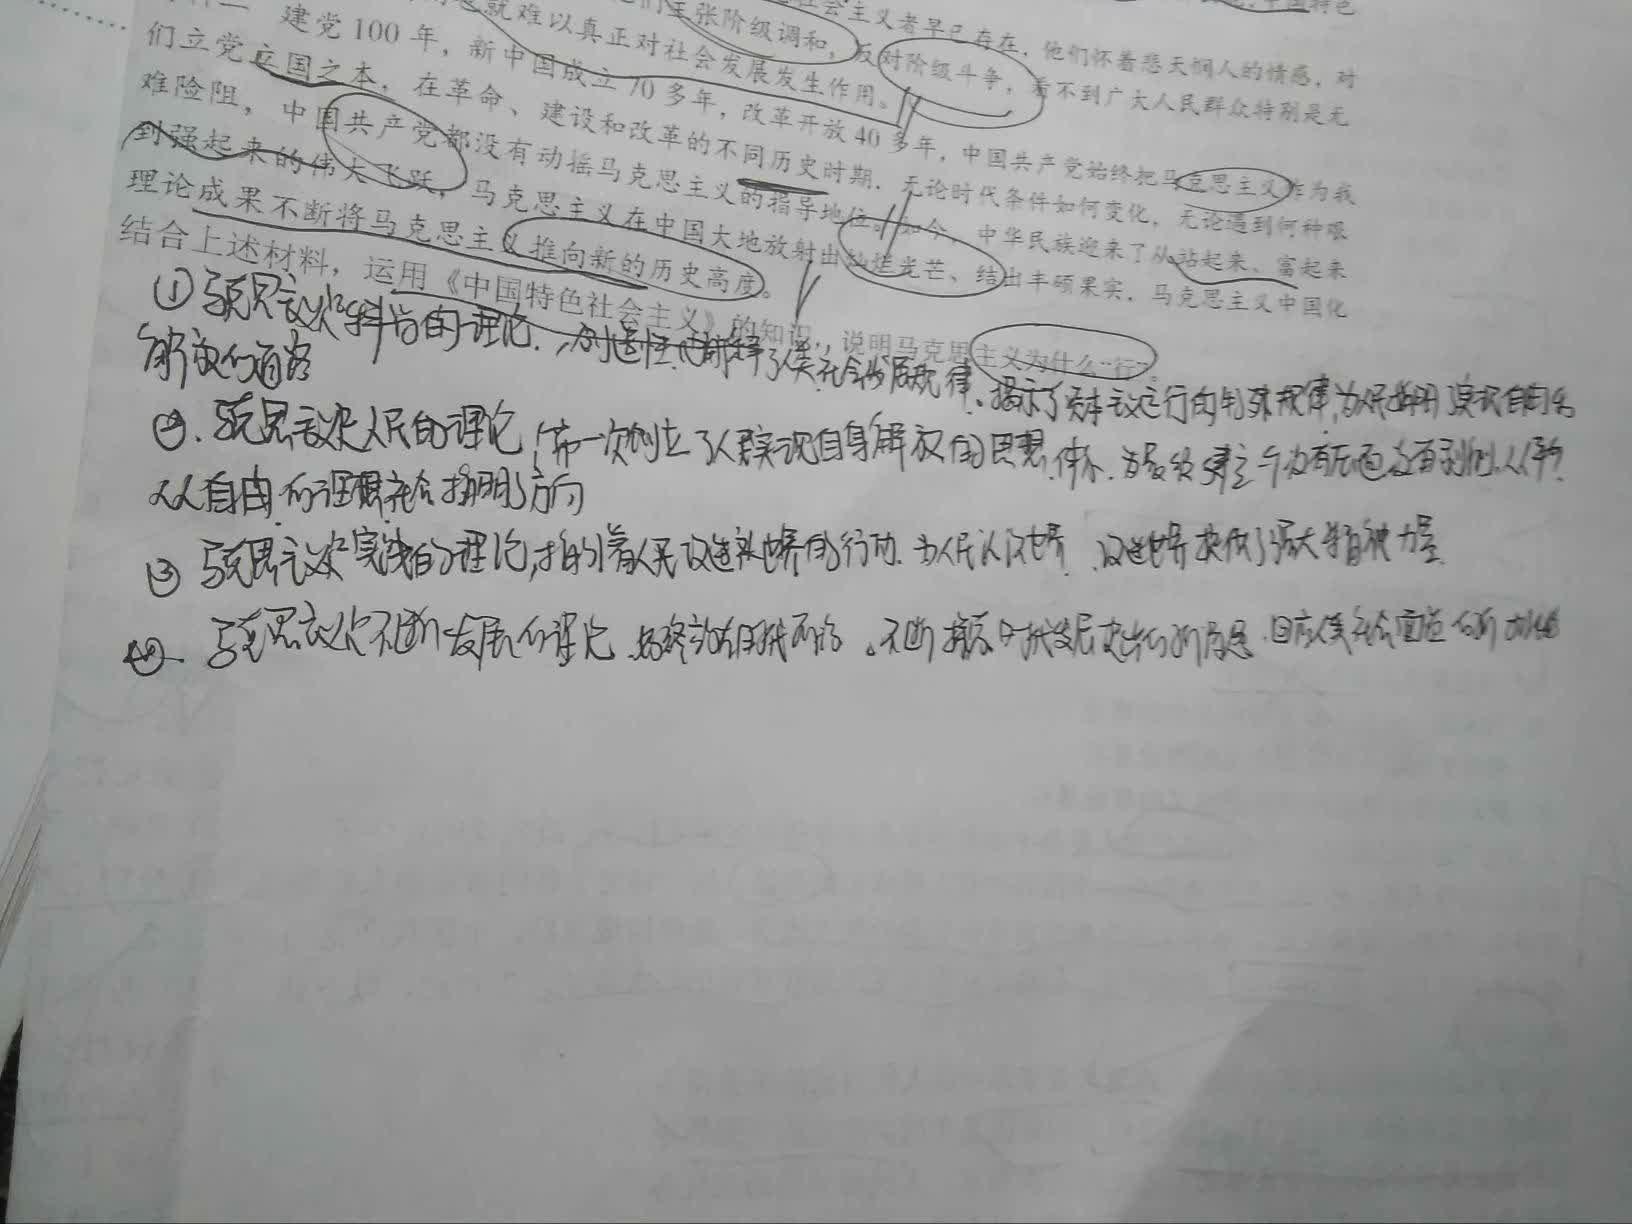 社会主义者早已存在，他们怀着悲天悯人的情感，对
主张阶级调和，反对阶级斗争，看不到广大人民群众特别是无
就难以真正对社会发展发生作用。
建党100年，新中国成立70多年，改革开放40多年，中国共产党始终把马克思主义作为我
们立党立国之本，在革命、建设和改革的不同历史时期，无论时代条件如何变化，无论遇到何种艰
难险阻，中国共产党都没有动摇马克思主义的指导地位。如今，中华民族迎来了从站起来、富起来
到强起来的伟大飞跃，马克思主义在中国大地放射出灿烂光芒、结出丰硕果实，马克思主义中国化
理论成果不断将马克思主义推向新的历史高度。
结合上述材料，运用《中国特色社会主义》的知识，说明马克思主义为什么“行”。
①马克思主义是科学的理论，创造性地揭示了人类社会发展规律、揭示了资本主义运行的特殊规律，为人民指明了实现自由和
解放的道路
②、马克思主义是人民的理论，第一次创立了人民实现自身解放的思想体系，为最终建立一个没有压迫没有剥削、人人平等、
人人自由的理想社会指明了方向
③马克思主义是实践的理论，指引着人民改造世界的行动，为人民认识世界、改造世界提供了强大精神力量
④、马克思主义是不断发展的理论，始终站在时代前沿。不断探索时代发展提出的新课题、回应人类社会面临的新挑战